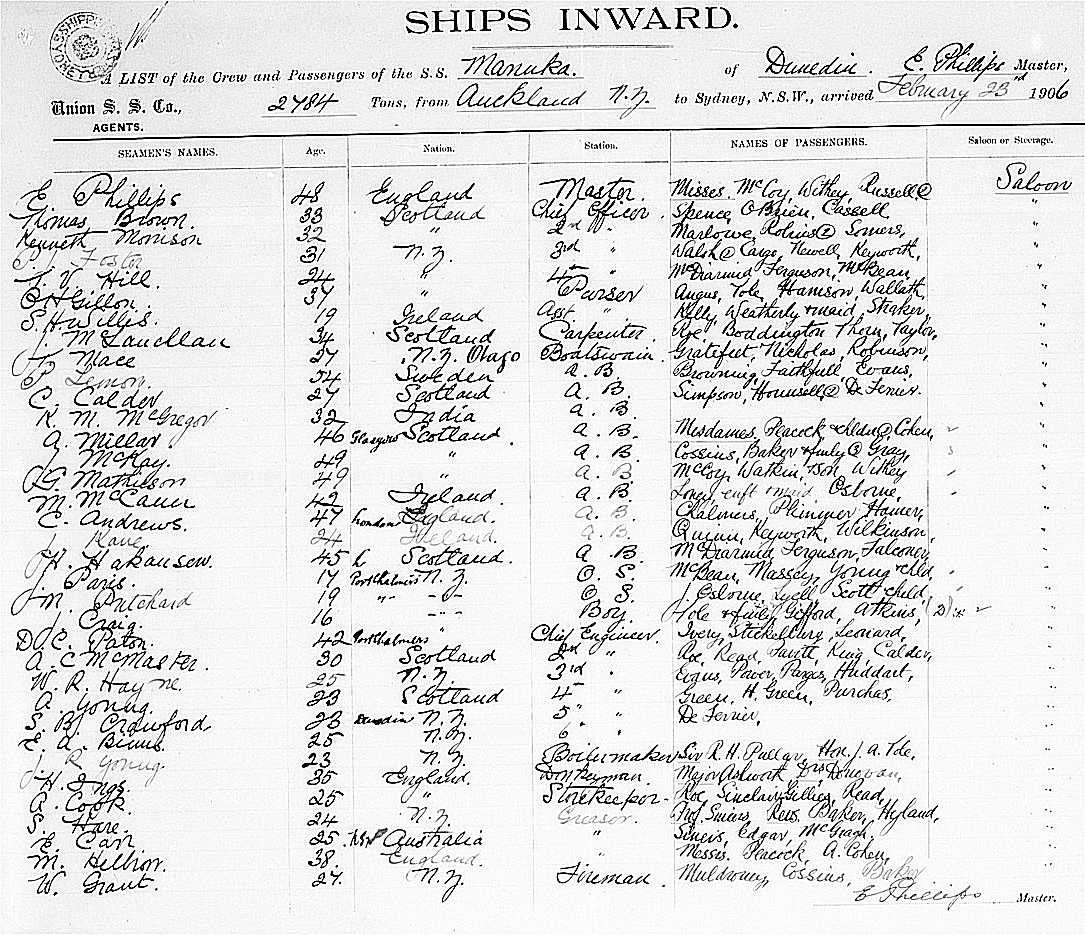 SHIPS INWARD.
A LIST of the Crew and Passengers of the S.S. Manuka. of Dunedin. E. Phillips Master,
Union S. S. Co., 2784 Tons, from Auckland N.Z. to Sydney, N.S.W., arrived February 23rd 1906
AGENTS.
SEAMEN'S NAMES. Age. Nation. Station. NAMES OF PASSENGERS. Saloon or Steerage.
E. Phillips 48 England Master Misses. McCoy, Withey, Russell @ Saloon
Thomas Brown. 33 Scotland Chief Officer. Spence, O'Brien, Cassell "
Kenneth Morrison 32 " 2nd " Marlowe, Robins @ Somers, "
P. J. Foster 31 N.Z. 3rd " Walsh @ Cargo, Newell, Keyworth, "
Hill. 24 " 4th " McDiarmid, Ferguson, McBean "
C H Gillon. 37 " Purser Angus, Tole, Harrison, Wallath, "
S. H. Willis. 19 Ireland Asst " Kelly, Weatherly & maid, Straker, "
J. McLauchlan 34 Scotland Carpenter. Roe, Boddington, Thorn, Taylor, "
Mace 27 N.Z. Otago Boatswain. Grateful, Nicholas, Robinson, "
P. Lemon. 54 Sweden A. B. Browning, Faithfull, Evans, "
C. Calder 27 Scotland A. B. Simpson, Hounsell @ De Ferrier. "
K. M. McGregor 32 India A. B.
A. Millar 46 Glasgow Scotland. A. B. Mesdames, Peacock & chldn @ Cohen,
McKay. 49 " A. B. Cossins, Baker & fmly @ Gray,
G. Mathieson 49 " A. B. McCoy, Watkin, & son, Withey
M. McCann 42 Ireland A. B. & maid, Osborne,
C. Andrews. 47 London England. A. B. Chalmers, Plimmer, Homer,
J. Kane 24 Ireland. A. B. Quinn, Keyworth, Wilkinson,
H. Hakansen. 45 Scotland. A. B. McDiarmid, Ferguson, Falconer,
J. Paris. 17 Port Chalmers N.Z. O. S. McBean, Massey, Young & chld,
M. Pritchard 19 " " - - O. S. J. Osborne, Lyell, Scott & child,
J. Craig. 16 - - Boy. Tole & fmly, Gifford, Atkins,
D. C. Paton. 42 Port Chalmers " Chief Engineer. Ivery, Stickelbury, Leonard,
A. C McMaster. 30 Scotland 2nd " Roe, Read, King, Calder,
W. R. Hayne. 25 N.Z. 3rd " Evans, Power, Huddart,
A. Young. 23 Scotland 4th " Green, H. Green, Purchas,
S. B. Crawford, 23 Dunedin N.Z. 5 " De Ferrier,
E. A. Binns. 25 N.Z. 6 "
J. R Young. 23 N.Z. Boilermaker Sir R. H. Pullar, Hon. J. A. Tole.
H. Ings. 35 England. Donkeyman. Major Ashworth Drs Donovan,
R. Cook. 25 " Storekeeper. Roe, Sinclair, Gillies, Read,
S. Hare. 24 N.Z. Greaser. Rees, Baker, Hyland,
E. Carr 25. NSW Australia " Edgar, McGragh.
M. Hellion. 38. England. " Messrs. Peacock, A. Cohen,
W. Grant. 27. N.Z. Fireman. Muldrooney, Cossins, Baker
E Phillips Master.